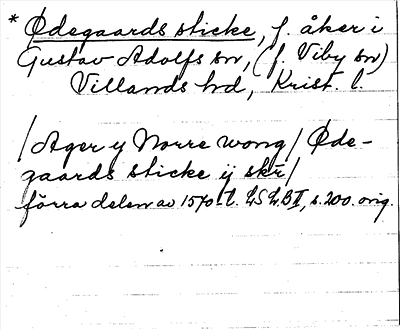 * Ødegaards sticke, f. åker i
Gustav Adolfs sn, (f. Viby sn)
Villands hd, Krist. l.
/Ager y Norre wong/ Øde-
gaards sticke ij skr/
förra delen av 1570-t. LSLBII, s. 200. orig.